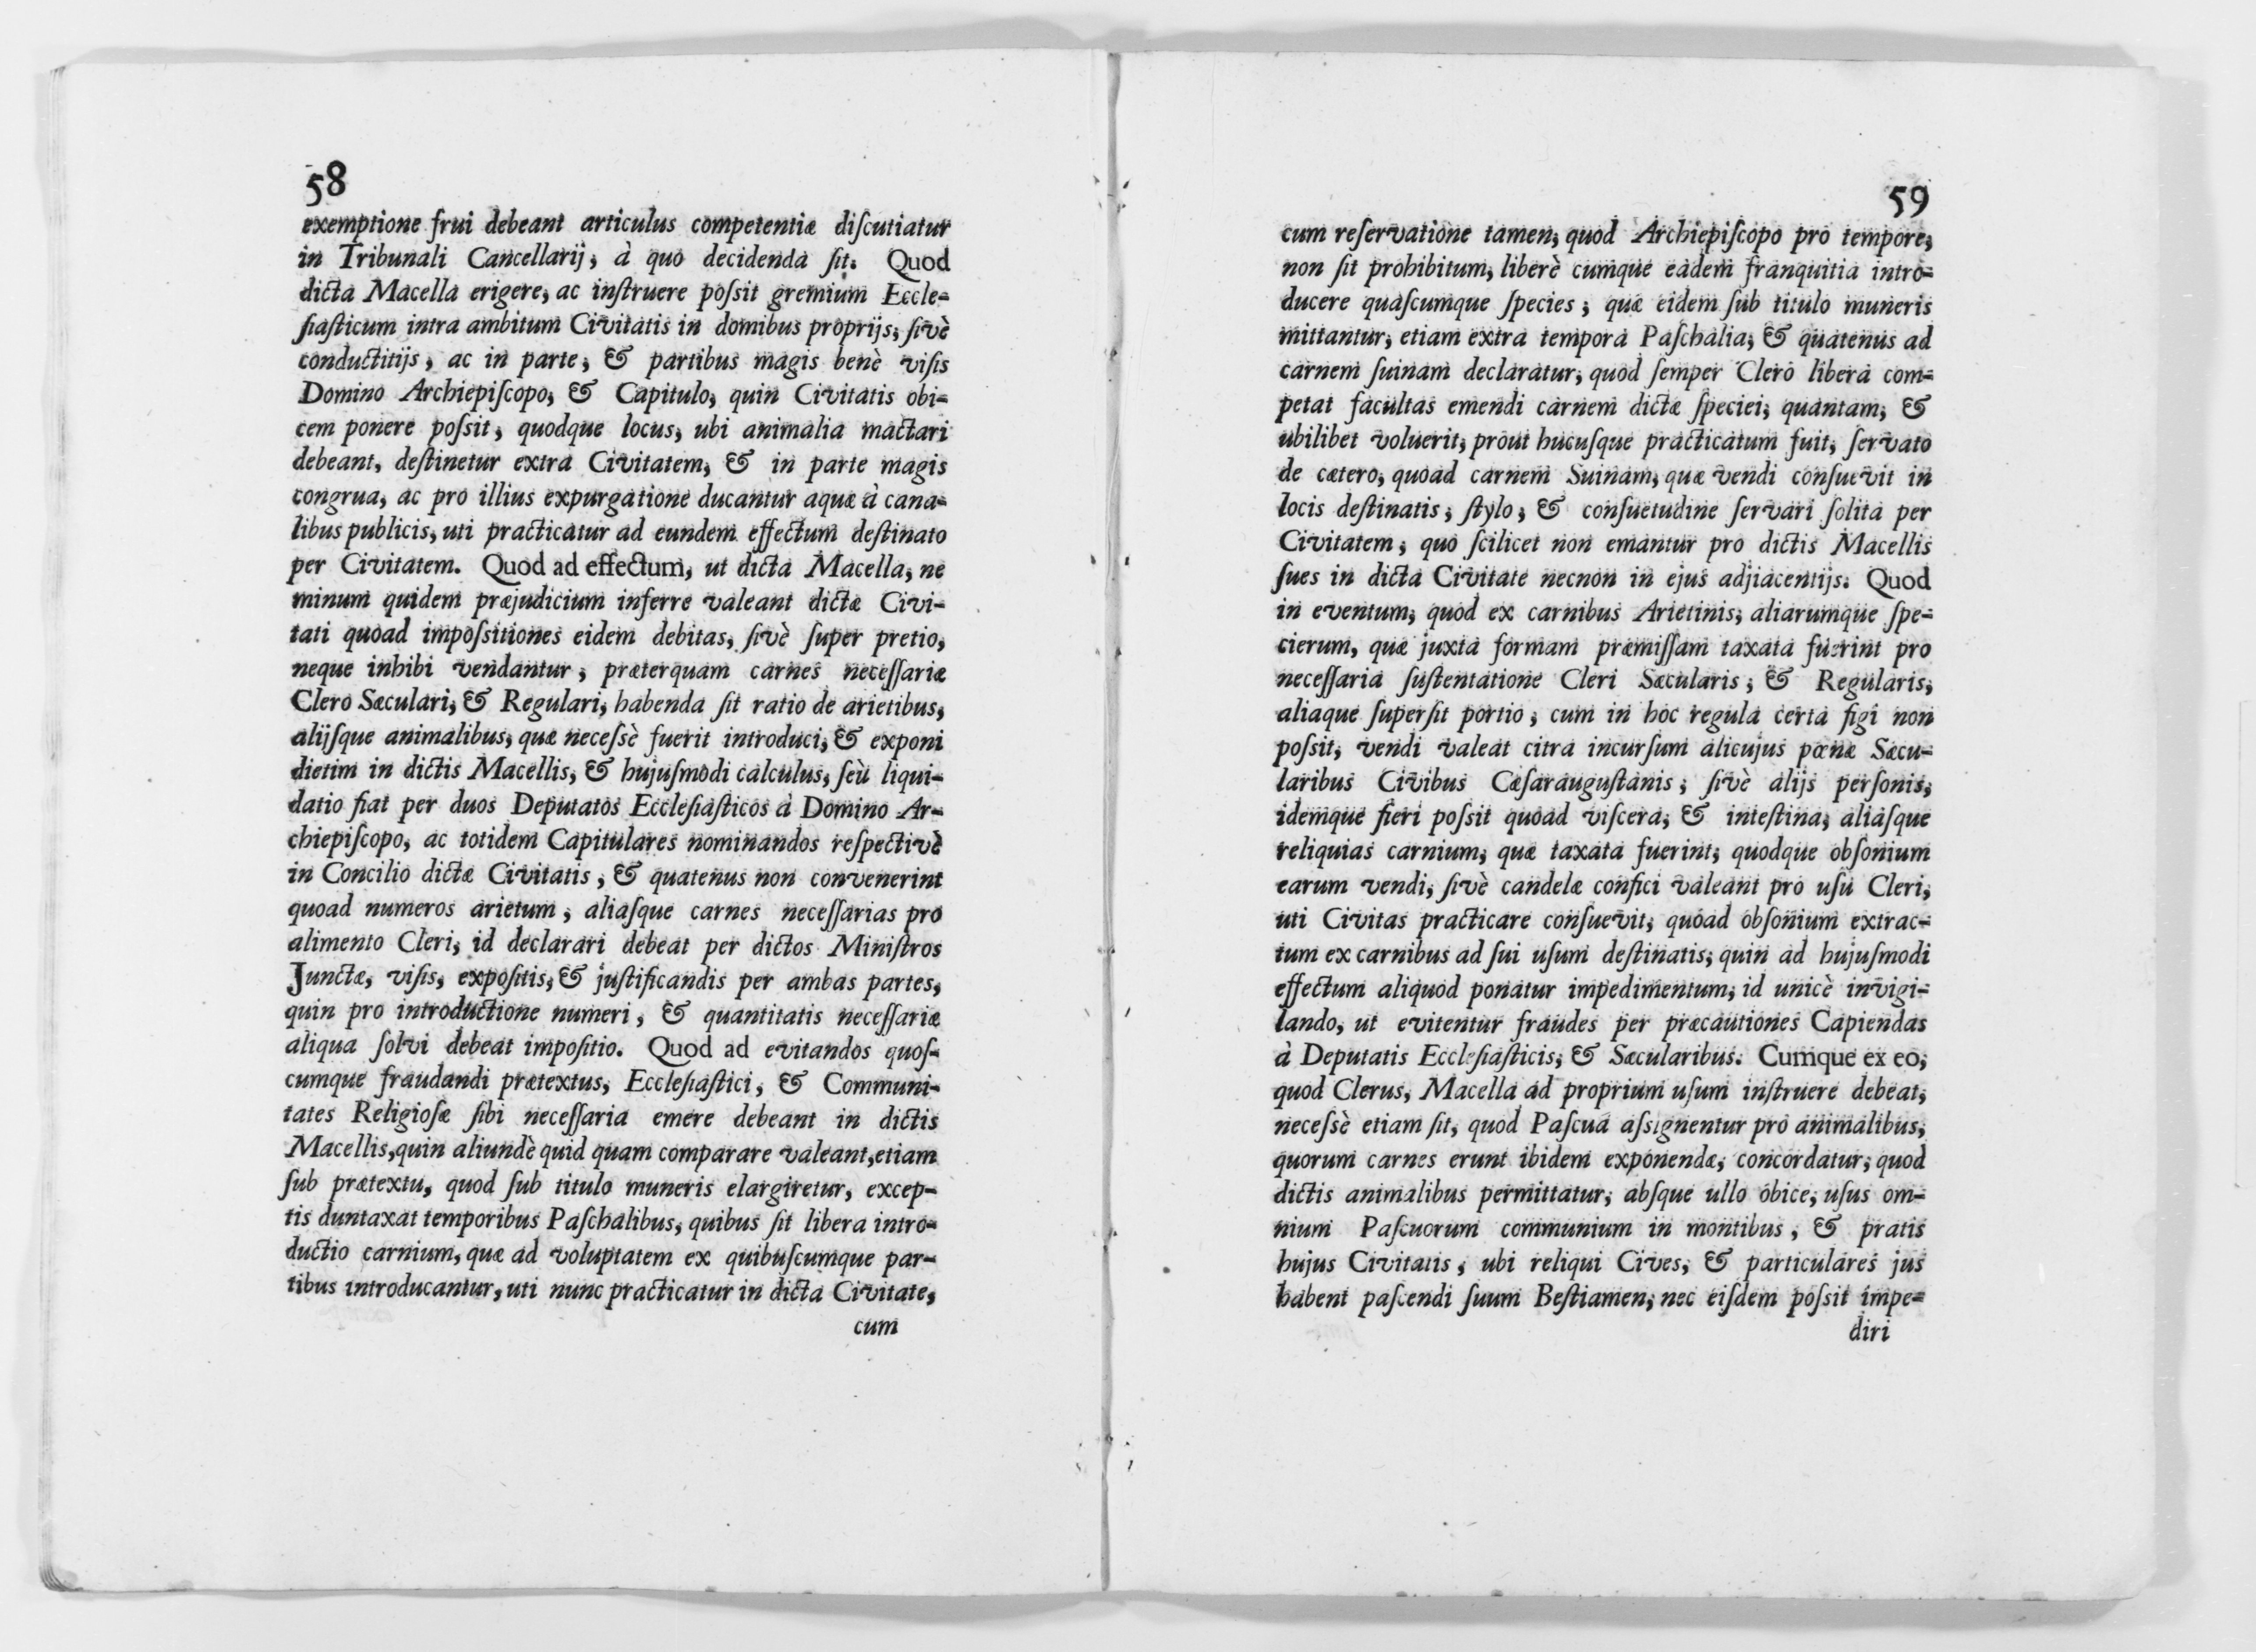 58
exemptione frui debeant articulus competentiæ diſcutiatur
in Tribunali Cancellarij, à quo decidenda ſit. Quod
dicta Macella erigere, ac inſtruere poſsit gremium Eccle-
ſiaſticum intra ambitum Civitatis in domibus proprijs, ſivè
conductitijs, ac in parte, & partibus magis benè viſis
Domino Archiepiſcopo, & Capitulo, quin Civitatis obi-
cem ponere poſsit, quodque locus, ubi animalia mactari
debeant, deſtinetur extra Civitatem, & in parte magis
congrua, ac pro illius expurgatione ducantur aquæ à cana-
libus publicis, uti practicatur ad eundem effectum deſtinato
per Civitatem. Quod ad effectum, ut dicta Macella, ne
minum quidem præjudicium inferre valeant dictæ Civi-
tati quoad impoſsitiones eidem debitas, ſivè ſuper pretio,
neque inhibi vendantur, præterquam carnes neceſſariæ
Clero Sæculari, & Regulari, habenda ſit ratio de arietibus,
alijſque animalibus, quæ neceſsè fuerit introduci, & exponi
dietim in dictis Macellis, & hujuſmodi calculus, ſeù liqui-
datio fiat per duos Deputatos Eccleſiaſticos à Domino Ar-
chiepiſcopo, ac totidem Capitulares nominandos reſpectivè
in Concilio dictæ Civitatis, & quatenus non convenerint
quoad numeros arietum, aliaſque carnes neceſſarias pro
alimento Cleri, id declarari debeat per dictos Miniſtros
Junctæ, viſis, expoſitis, & juſtificandis per ambas partes,
quin pro introductione numeri, & quantitatis neceſſariæ
aliqua ſolvi debeat impoſitio. Quod ad evitandos quoſ-
cumque fraudandi prætextus, Eccleſiaſtici, & Communi-
tates Religioſæ ſibi neceſſaria emere debeant in dictis
Macellis,quin aliundè quid quam comparare valeant,etiam
ſub prætextu, quod ſub titulo muneris elargiretur, excep-
tis duntaxat temporibus Paſchalibus, quibus ſit libera intro-
ductio carnium, quæ ad voluptatem ex quibuſcumque par-
tibus introducantur, uti nunc practicatur in dicta Civitate,
cum
59
cum reſervatione tamen, quod Archiepiſcopo pro tempore,
non ſit prohibitum, liberè cumque eadem franquitia intro-
ducere quaſcumque ſpecies, quæ eidem ſub titulo muneris
mittantur, etiam extra tempora Paſchalia, & quatenus ad
carnem ſuinam declaratur, quod ſemper Clero libera com-
petat facultas emendi carnem dictæ ſpeciei, quantam, &
ubilibet voluerit, prout hucuſque practicatum fuit, ſervato
de cætero, quoad carnem Suinam, quæ vendi conſuevit in
locis deſtinatis, ſtylo, & conſuetudine ſervari ſolita per
Civitatem, quo ſcilicet non emantur pro dictis Macellis
ſues in dicta Civitate necnon in ejus adjiacentijs. Quod
in eventum, quod ex carnibus Arietinis, aliarumque ſpe-
cierum, quæ juxta formam præmiſſam taxata fuerint pro
neceſſaria ſuſtentatione Cleri Sæcularis, & Regularis,
aliaque ſuperſit portio, cum in hoc regula certa figi non
poſsit, vendi valeat citra incurſum alicujus pœnæ Sæcu-
laribus Civibus Cæſarauguſtanis, ſivè alijs perſonis,
idemque fieri poſsit quoad viſcera, & inteſtina, aliaſque
reliquias carnium, quæ taxata fuerint, quodque obſonium
earum vendi, ſivè candelæ confici valeant pro uſu Cleri,
uti Civitas practicare conſuevit, quoad obſonium extrac-
tum ex carnibus ad ſui uſum deſtinatis, quin ad hujuſmodi
effectum aliquod ponatur impedimentum, id unicè invigi-
lando, ut evitentur fraudes per præcautiones Capiendas
à Deputatis Eccleſiaſticis, & Sæcularibus. Cumque ex eo,
quod Clerus, Macella ad proprium uſum inſtruere debeat,
neceſsè etiam ſit, quod Paſcua aſsignentur pro animalibus,
quorum carnes erunt ibidem exponendæ, concordatur, quod
dictis animalibus permittatur, abſque ullo obice, uſus om-
nium Paſcuorum communium in montibus, & pratis
hujus Civitatis, ubi reliqui Cives, & particulares jus
habent paſcendi ſuum Beſtiamen, nec eiſdem poſsit impe-
diri